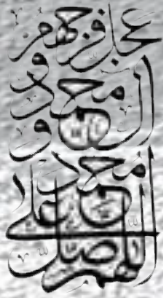 اللهم صل على
محمد و
آل محمد و
عجل فرجهم